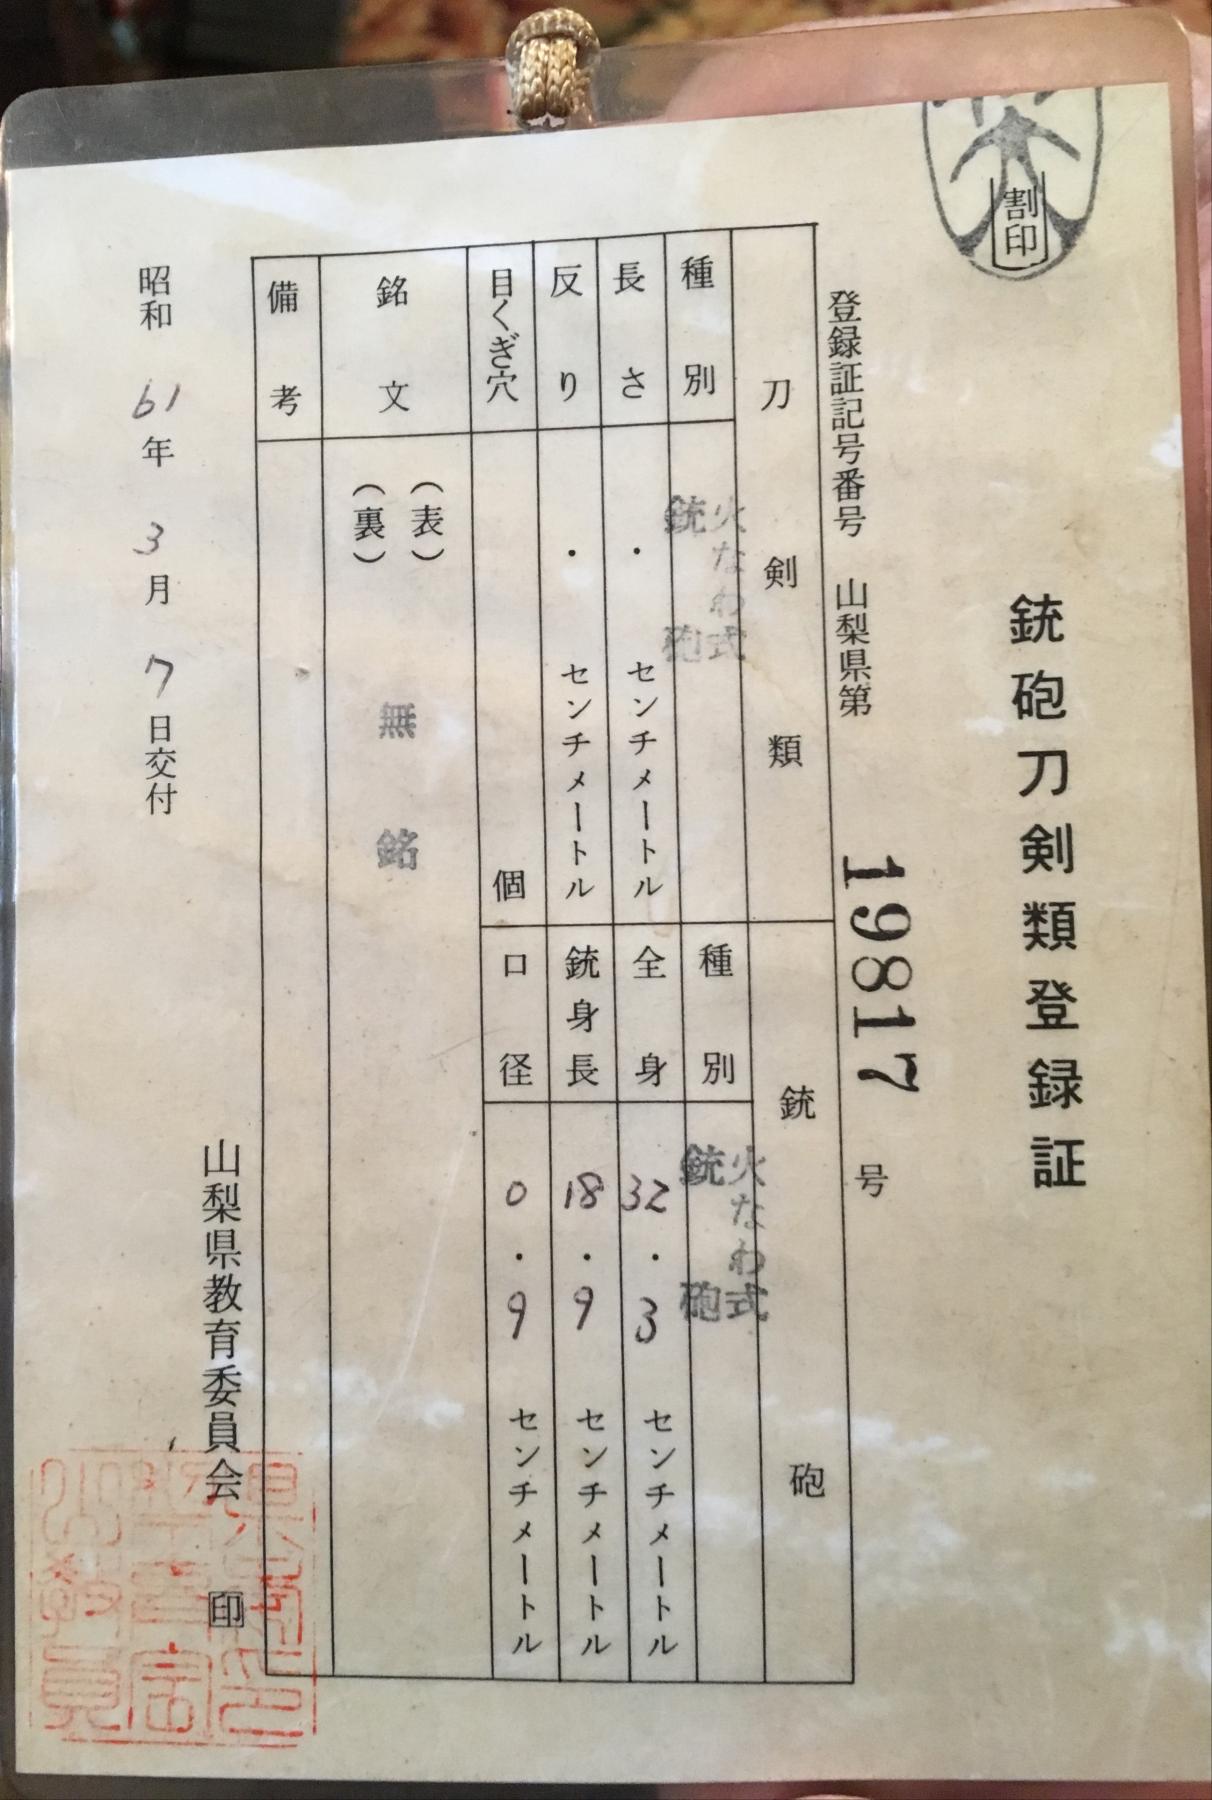 割印
銃砲刀剣類登録証
登録証記号番号 山梨県第 19817 号
刀剣類
銃砲
種別
火なわ式
銃砲
種別
火なわ式
銃砲
長さ
・ センチメートル
全身
32・3 センチメートル
反り
・ センチメートル
銃身長
18・9 センチメートル
目くぎ穴
個
口径
0・9 センチメートル
銘文
(表)
(裏)
無銘
備考
昭和 61 年 3 月 7 日交付
山梨県教育委員会 印